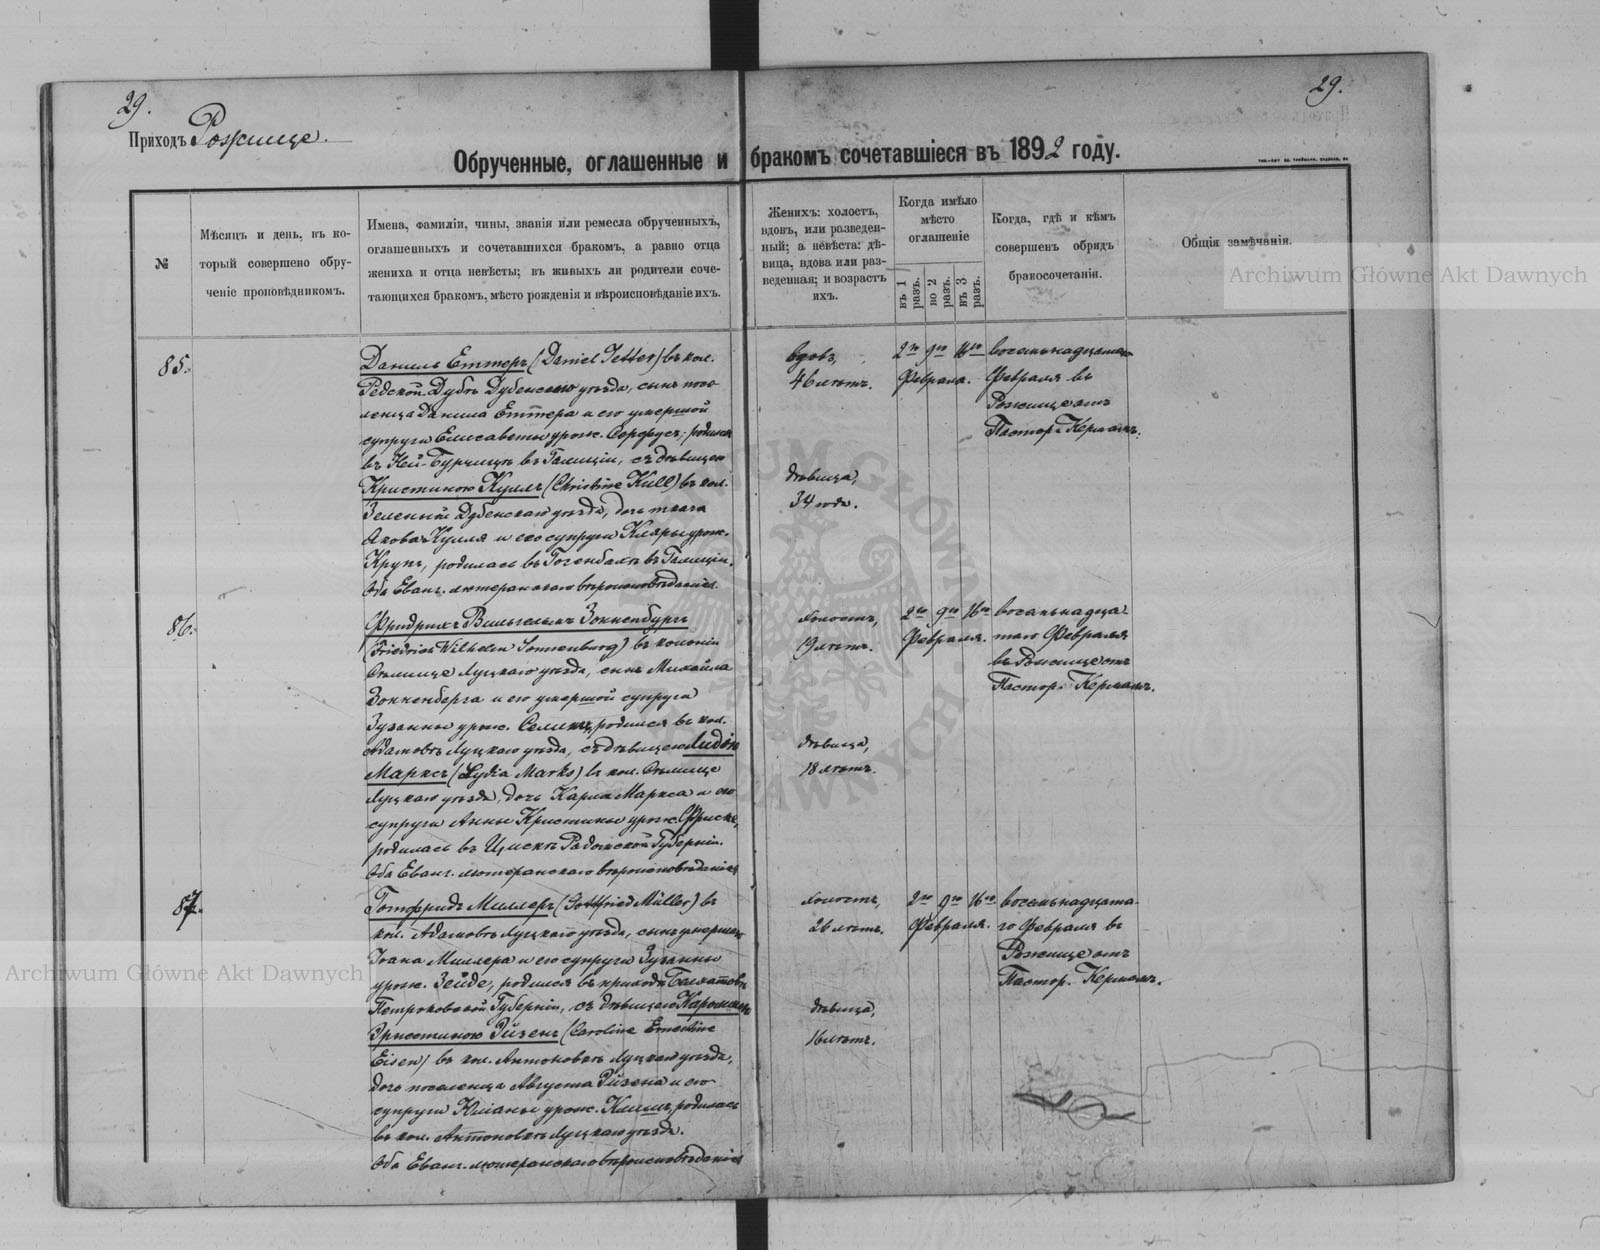 29.
29.
Приходъ Рожище.
Обрученные, оглашенные и бракомъ сочетавшіеся въ 1892 году.
№
Мѣсяцъ и день, въ ко-
торый совершено обру-
ченіе проповѣдникомъ.
Имена, фамиліи, чины, званія или ремесла обрученныхъ,
оглашенныхъ и сочетавшихся бракомъ, а равно отца
жениха и отца невѣсты; въ живыхъ ли родители соче-
тающихся бракомъ, мѣсто рожденія и вѣроисповѣданіе ихъ.
Женихъ: холостъ,
вдовъ, или разведен-
ный; а невѣста: дѣ-
вица, вдова или раз-
веденная; и возрастъ
ихъ.
Когда имѣло
мѣсто
оглашеніе
въ 1 разъ.
во 2 разъ.
въ 3 разъ.
Когда, гдѣ и кѣмъ
совершенъ обрядъ
бракосочетанія.
Общія замѣчанія.
Archiwum Główne Akt Dawnych
85.
Даніилъ Еттеръ (Daniel Jetter) въ кол.
Дубѣ Дубенскаго уѣзда, сынъ посе-
ленца Данила Еттера и его умершой
супруги Елисаветы урож. родился
въ Ней- въ Галиціи, съ дѣвицею
Кристиною Куллъ (Christine Kull) въ кол.
Зеленый Дубенскаго уѣзда, дочь ткача
Якова Кулля и его супруги Клары урож.
Крупъ, родилась въ въ Галиціи.
Оба Еванг. лютеранскаго вѣроисповѣданія.
вдовъ,
46 лѣтъ.
дѣвица,
34 года.
2го 9го 16го
Февраля.
восемьнадцатаго
Февраля въ
Рожище отъ
Пастор. Керманъ.
86.
Фридрихъ Вильгельмъ Зонненбургъ
(Friedrich Wilhelm Sonnenburg) въ колоніи
Луцкаго уѣзда, сынъ Михайла
Зонненберга и его умершой супруги
Зузанны урож. родился въ кол.
Адамовъ Луцкаго уѣзда, съ дѣвицею Лидіею
Марксъ (Lydia Marks) въ кол.
Луцкаго уѣзда, дочь Карла Маркса и его
супруги Анны Кристины урож. Фриске,
родилась въ Радомской Губерніи.
Оба Еванг. лютеранскаго вѣроисповѣданія
холостъ,
19 лѣтъ.
дѣвица,
18 лѣтъ.
2го 9го 16го
Февраля.
восемьнадца-
таго Февраля
въ Рожище отъ
Пастор. Керманъ.
87.
Готфридъ Миллеръ (Gottfried Müller) въ
кол. Адамовъ Луцкаго уѣзда, сынъ умершаго
Ивана Миллера и его супруги Зузанны
урож. Зейде, родился въ приходѣ Белхатовъ
Петроковской Губерніи, съ дѣвицею Каролиною
Эрнстиною Эйзенъ (Caroline Ernestine
Eisen) въ кол. Антоновкѣ Луцкаго уѣзда,
дочь поселенца Августа Эйзена и его
супруги Юліаны урож. родилась
въ кол. Антоновкѣ Луцкаго уѣзда.
Оба Еванг. лютеранскаго вѣроисповѣданія
холостъ,
26 лѣтъ.
дѣвица,
16 лѣтъ.
2го 9го 16го
Февраля.
восемьнадцата-
го Февраля въ
Рожище отъ
Пастор. Керманъ.
Archiwum Główne Akt Dawnych